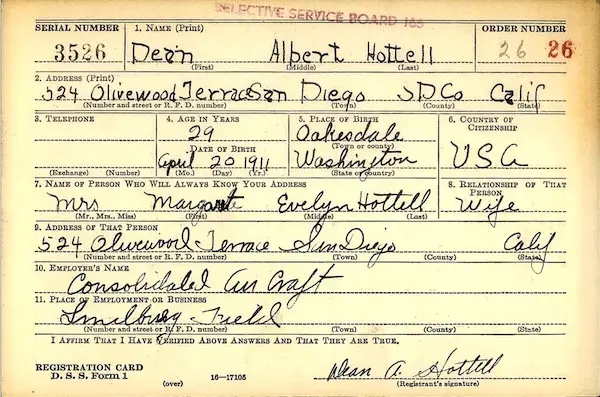 SELECTIVE SERVICE BOARD 165
SERIAL NUMBER 1. NAME (Print) ORDER NUMBER
3526 Dean Albert Hottell 26 26
(First) (Middle) (Last)
2. ADDRESS (Print)
524 Olivewood Terrace San Diego SDCo Calif
(Number and street or R. F. D. number) (Town) (County) (State)
3. TELEPHONE 4. AGE IN YEARS 5. PLACE OF BIRTH 6. COUNTRY OF CITIZENSHIP
29 Oakesdale
DATE OF BIRTH (Town or county)
April 20 1911 Washington USA
(Exchange) (Number) (Mo.) (Day) (Yr.) (State or country)
7. NAME OF PERSON WHO WILL ALWAYS KNOW YOUR ADDRESS 8. RELATIONSHIP OF THAT PERSON
Mrs Margarete Evelyn Hottell Wife
(Mr., Mrs., Miss) (First) (Middle) (Last)
9. ADDRESS OF THAT PERSON
524 Olivewood Terrace San Diego Calif
(Number and street or R. F. D. number) (Town) (County) (State)
10. EMPLOYER'S NAME
Consolidated Air Craft
11. PLACE OF EMPLOYMENT OR BUSINESS
Field
(Number and street or R. F. D. number) (Town) (County) (State)
I AFFIRM THAT I HAVE VERIFIED ABOVE ANSWERS AND THAT THEY ARE TRUE.
REGISTRATION CARD
D. S. S. Form 1 (over) 16—17105
Dean A. Hottell
(Registrant's signature)